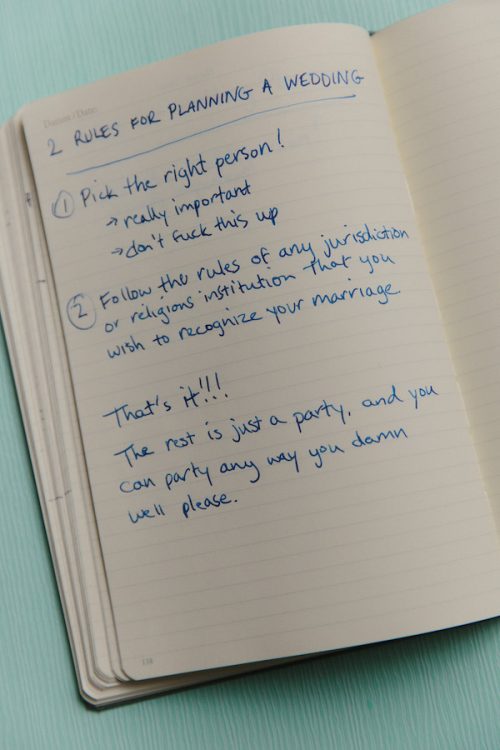 Datum/Date:
2 RULES FOR PLANNING A WEDDING
1 Pick the right person!
→ really important
→ don't fuck this up
2 Follow the rules of any jurisdiction
or religious institution that you
wish to recognize your marriage.
That's it!!!
The rest is just a party, and you
can party any way you damn
well please.